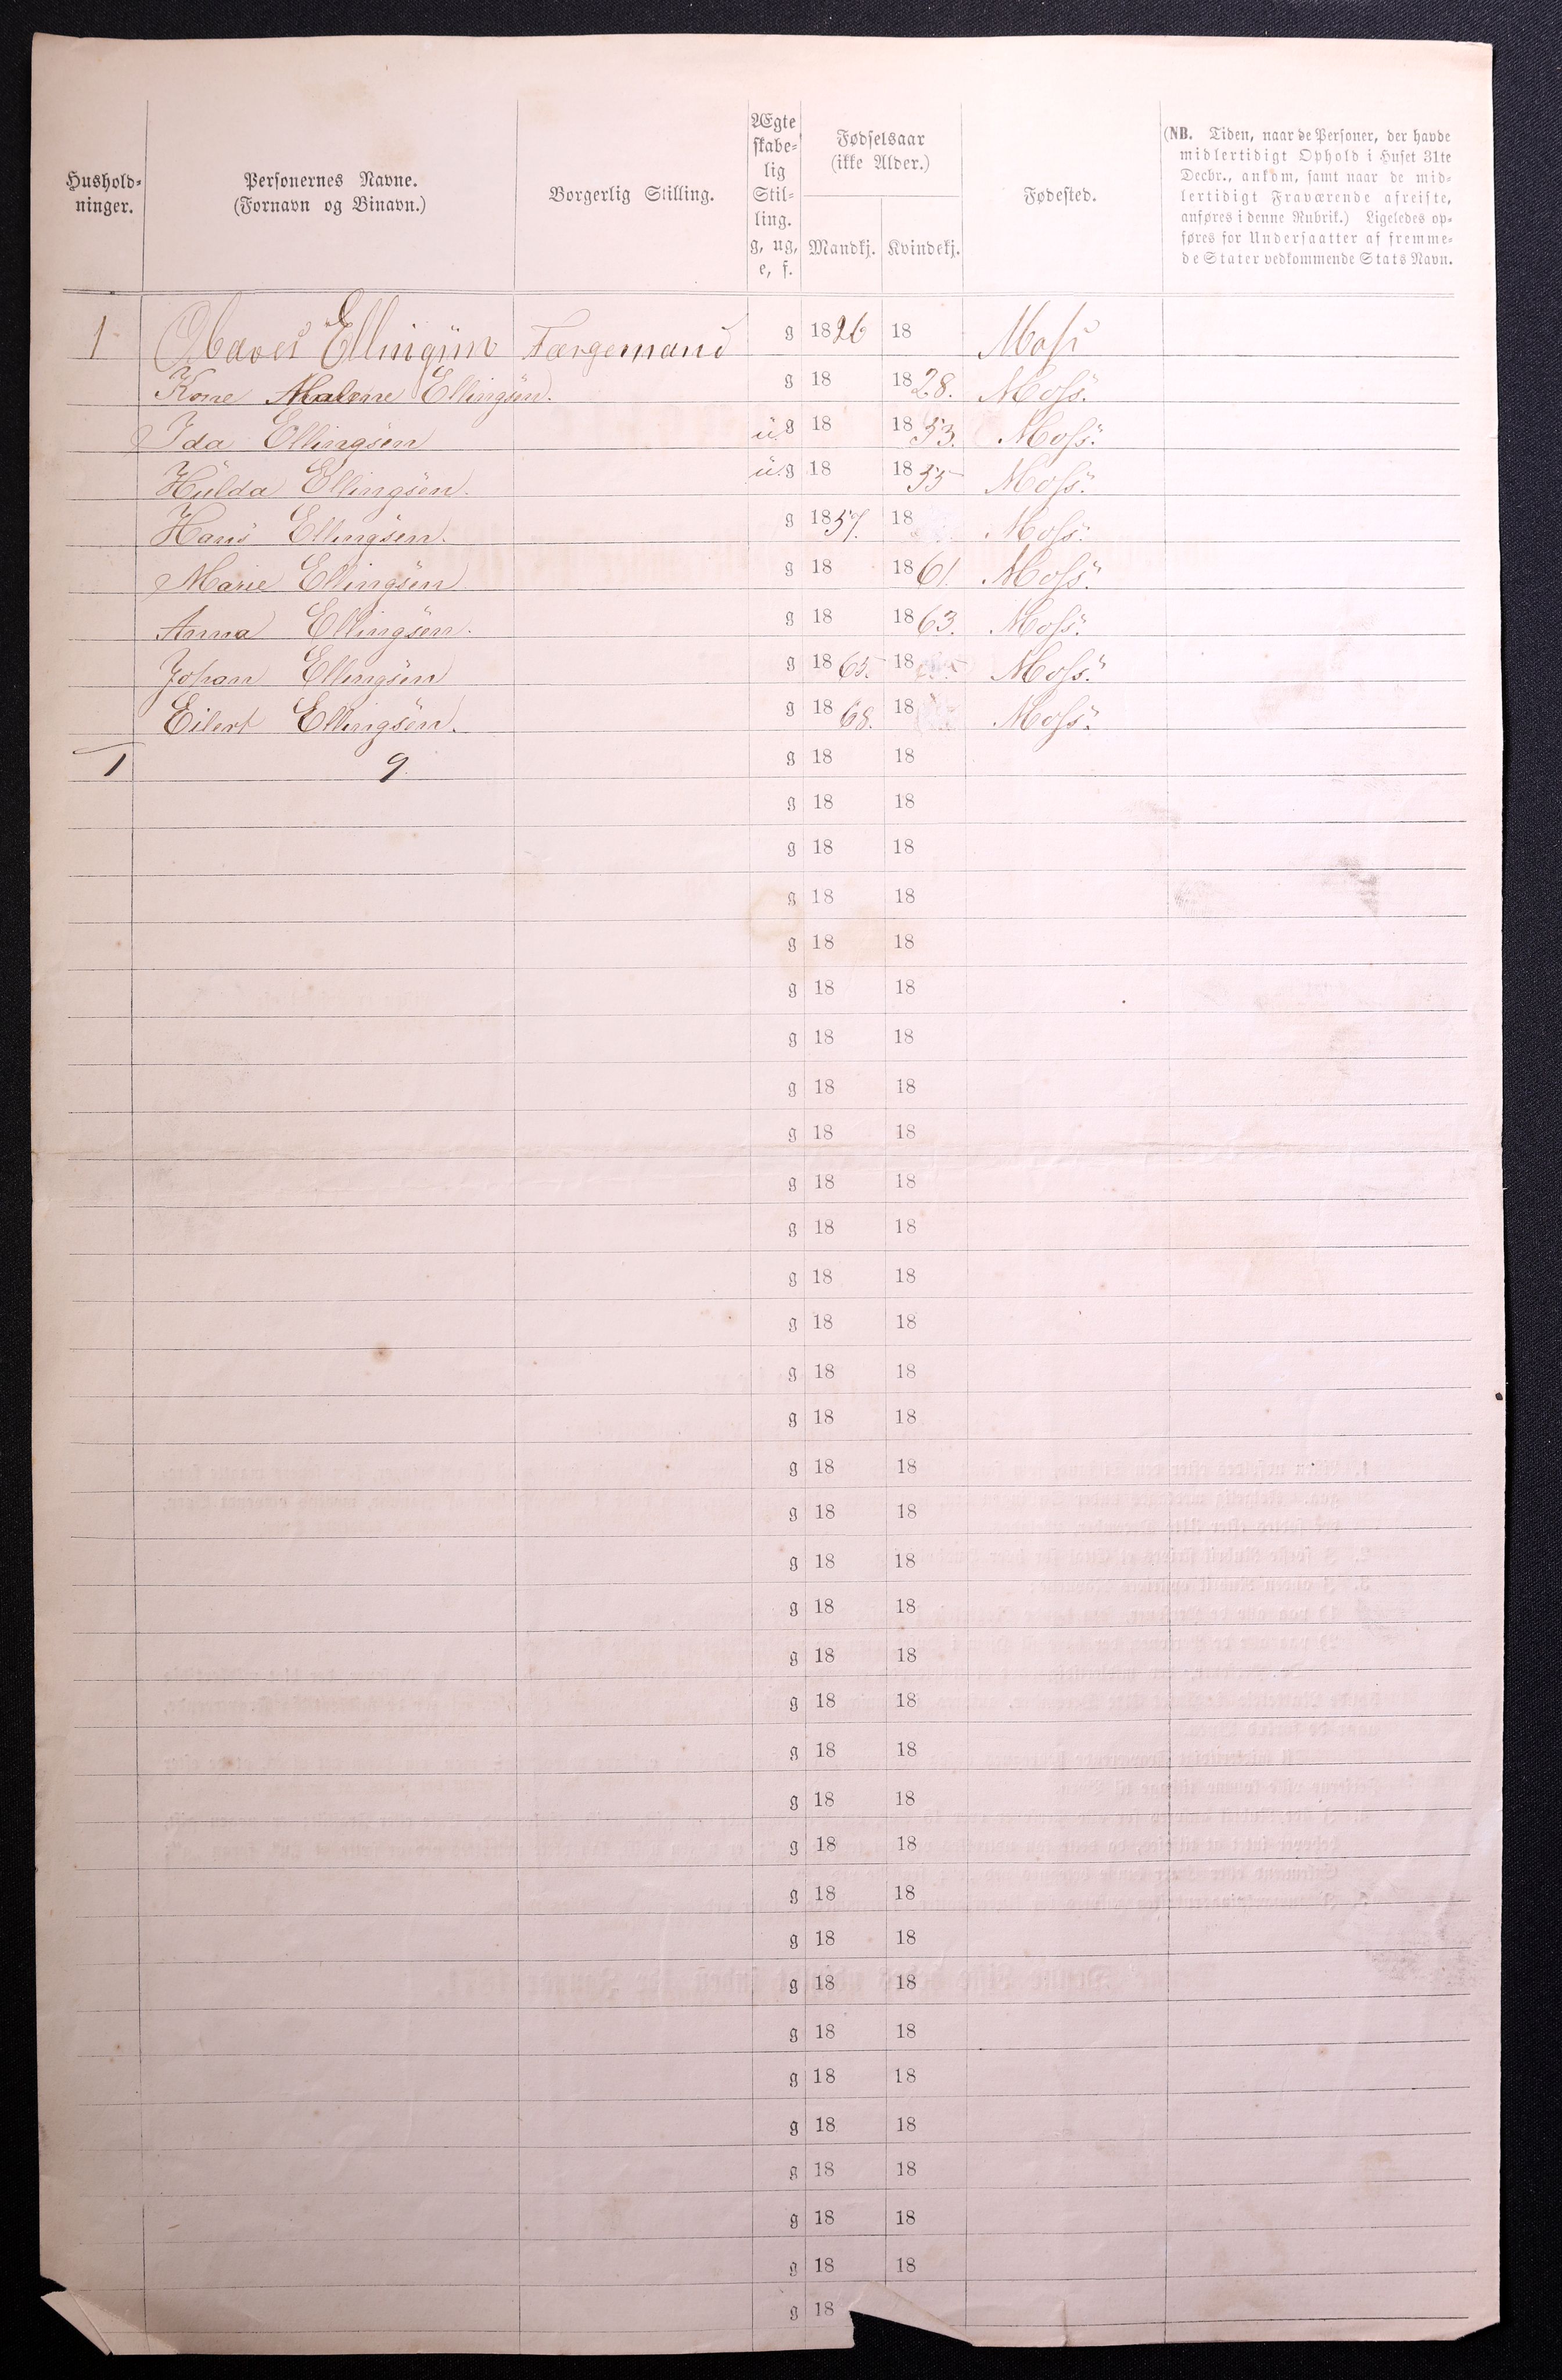 Hushold-
ninger.
Personernes Navne.
(Fornavn og Binavn.)
Borgerlig Stilling.
Ægte
skabe-
lig
Stil-
ling.
g, ug,
e, f.
Fødselsaar
(ikke Alder.)
Mandkj. Kvindekj.
Fødested.
(NB. Tiden, naar de Personer, der havde
midlertidigt Ophold i Huset 31te
Decbr., ankom, samt naar de mid-
lertidigt Fraværende afreiste,
anføres i denne Rubrik.) Ligeledes op-
føres for Undersaatter af fremme-
de Stater vedkommende Stats Navn.
1 Ellingsen Færgemand g 1826 18 Moss
Kone Malene Ellingsen. g 18 1828. Moss.
Ida Ellingsen u.g 18 1853. Moss.
Hulda Ellingsen. u.g 18 1855 Moss.
Hans Ellingsen. g 1857. 18 Moss.
Marie Ellingsen g 18 1861. Moss.
Anna Ellingsen. g 18 1863. Moss.
Johan Ellingsen g 1865. 18 Moss.
Eilert Ellingsen. g 1868. 18 Moss.
1 9. g 18 18
g 18 18
g 18 18
g 18 18
g 18 18
g 18 18
g 18 18
g 18 18
g 18 18
g 18 18
g 18 18
g 18 18
g 18 18
g 18 18
g 18 18
g 18 18
g 18 18
g 18 18
g 18 18
g 18 18
g 18 18
g 18 18
g 18 18
g 18 18
g 18 18
g 18 18
g 18 18
g 18 18
g 18 18
g 18 18
g 18 18
g 18 18
g 18 18
g 18